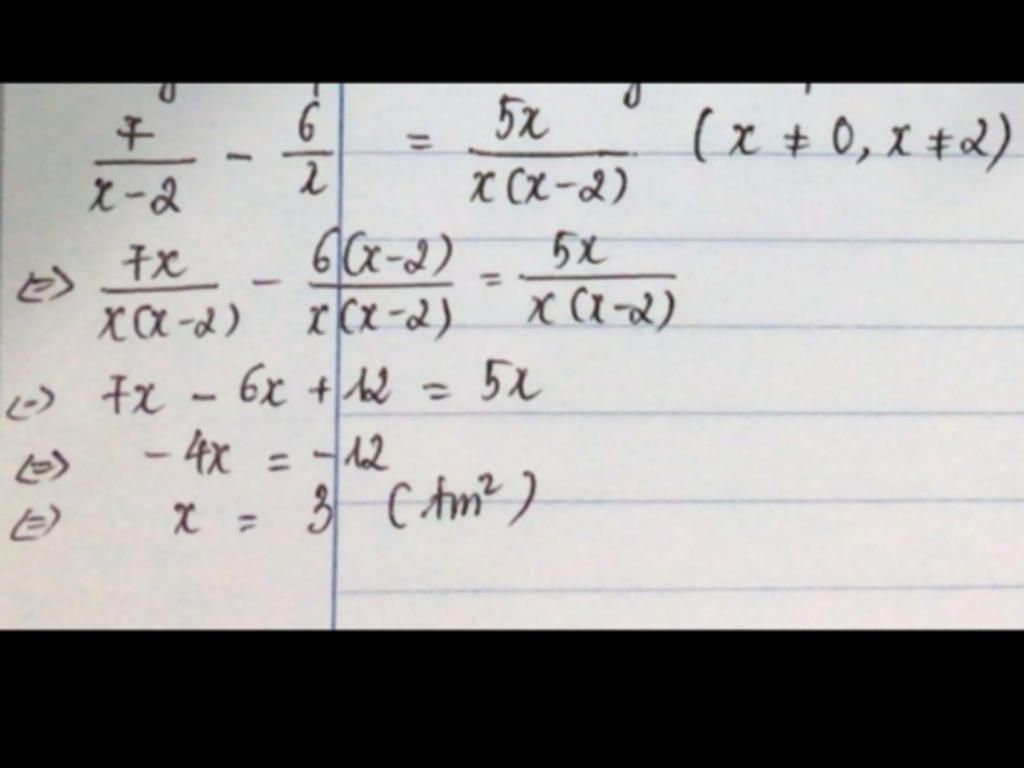 7/(x-2) - 6/x = 5x/(x(x-2)) (x ≠ 0, x ≠ 2)
<=> 7x/(x(x-2)) - 6(x-2)/(x(x-2)) = 5x/(x(x-2))
<=> 7x - 6x + 12 = 5x
<=> -4x = -12
<=> x = 3 (tm²)